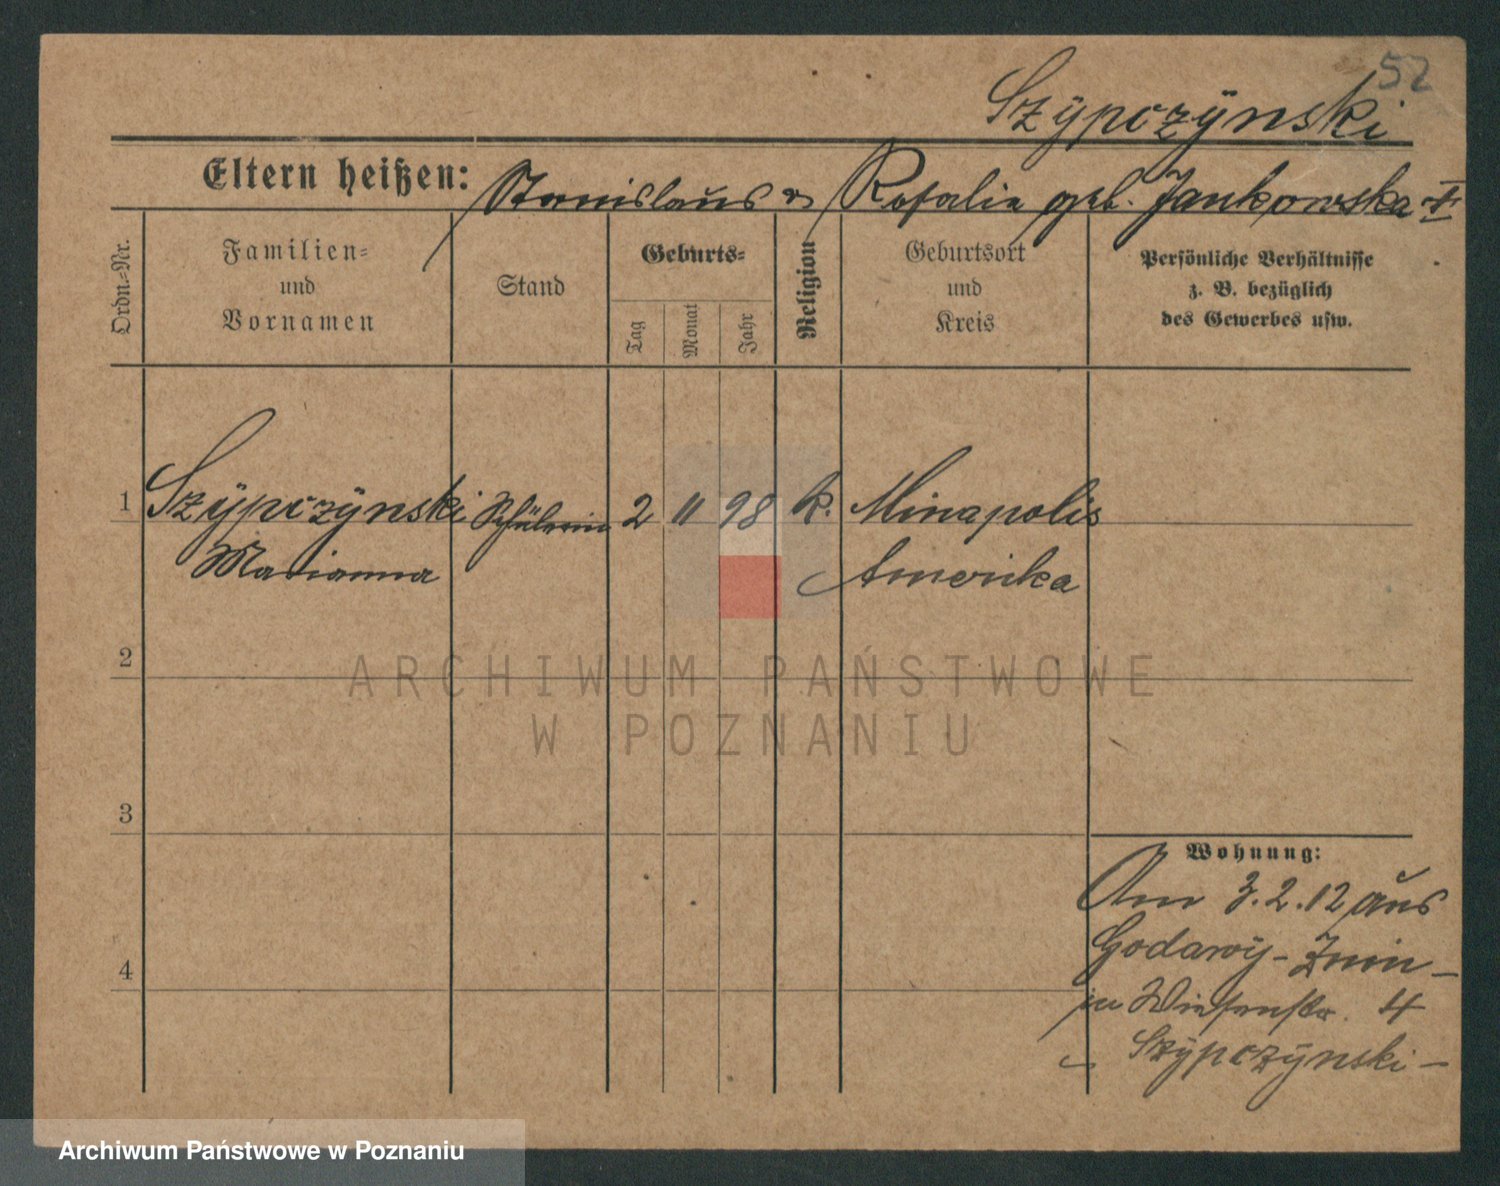 52
Szÿpczÿnski
Eltern heißen: Stanislaus u Rosalie geb. Jankowska †
Ordn.-Nr.
Familien- und Vornamen
Stand
Geburts-
Tag
Monat
Jahr
Religion
Geburtsort und Kreis
Persönliche Verhältnisse
z. B. bezüglich
des Gewerbes usw.
1 Szÿpczÿnski Schülerin 2 11 98 k. Minapolis
Marianna Amerika
2
ARCHIWUM PAŃSTWOWE
W POZNANIU
3
Wohnung:
Am 3.2.12 aus
Godawÿ - Znin -
in Wiesenstr. 4
Szÿpczÿnski -
4
Archiwum Państwowe w Poznaniu